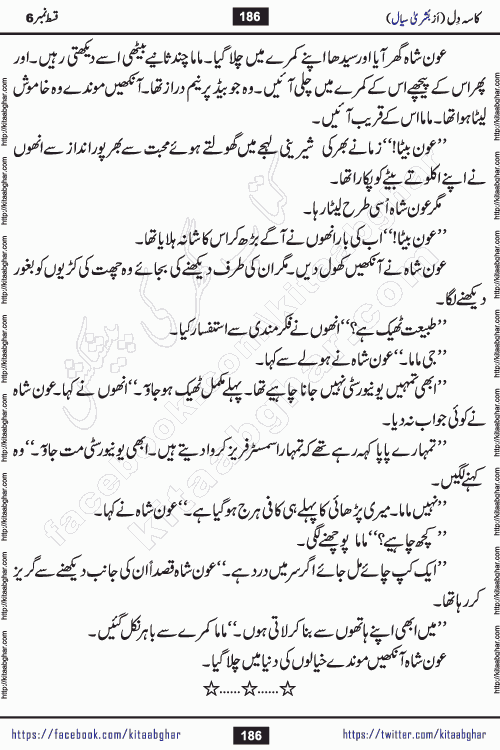 کاسہ دل (از بشریٰ سیال)
186
قسط نمبر 6
عون شاہ گھر آیا اور سیدھا اپنے کمرے میں چلا گیا۔ ماما چند ثانیے بیٹھی اسے دیکھتی رہیں۔ اور
پھر اس کے پیچھے اس کے کمرے میں چلی آئیں۔ وہ جو بیڈ پر نیم دراز تھا۔ آنکھیں موندے وہ خاموش
لیٹا ہوا تھا۔ ماما اس کے قریب آئیں۔
’’عون بیٹا!‘‘ زمانے بھر کی شیرینی لہجے میں گھولتے ہوئے محبت سے بھرپور انداز سے انھوں
نے اپنے اکلوتے بیٹے کو پکارا تھا۔
مگر عون شاہ اُسی طرح لیٹا رہا۔
’’عون بیٹا!‘‘ اب کی بار انھوں نے آگے بڑھ کر اس کا شانہ ہلایا تھا۔
عون شاہ نے آنکھیں کھول دیں۔ مگر ان کی طرف دیکھنے کی بجائے وہ چھت کی کڑیوں کو بغور
دیکھنے لگا۔
’’طبیعت ٹھیک ہے؟‘‘ انھوں نے فکرمندی سے استفسار کیا۔
’’جی ماما۔‘‘ عون شاہ نے ہولے سے کہا۔
’’ابھی تمہیں یونیورسٹی نہیں جانا چاہیے تھا۔ پہلے مکمل ٹھیک ہو جاؤ۔‘‘ انھوں نے کہا۔ عون شاہ
نے کوئی جواب نہ دیا۔
’’تمہارے پاپا کہہ رہے تھے کہ تمہارا سمسٹر فریز کروا دیتے ہیں۔ ابھی یونیورسٹی مت جاؤ۔‘‘ وہ
کہنے لگیں۔
’’نہیں ماما۔ میری پڑھائی کا پہلے ہی کافی ہرج ہو گیا ہے۔‘‘ عون شاہ نے کہا۔
’’کچھ چاہیے؟‘‘ ماما پوچھنے لگی۔
’’ایک کپ چائے مل جائے اگر سر میں درد ہے۔‘‘ عون شاہ قصداً اُن کی جانب دیکھنے سے گریز
کر رہا تھا۔
’’میں ابھی اپنے ہاتھوں سے بنا کر لاتی ہوں۔‘‘ ماما کمرے سے باہر نکل گئیں۔
عون شاہ آنکھیں موندے خیالوں کی دنیا میں چلا گیا۔
☆......☆......☆
https://facebook.com/kitaabghar
186
https://twitter.com/kitaabghar
http://kitaabghar.com
http://kitaabghar.com
http://kitaabghar.com
http://kitaabghar.com
http://kitaabghar.com
http://kitaabghar.com
http://kitaabghar.com
http://kitaabghar.com
کتاب گھر کی پیشکش
facebook.com/kitaabghar
kitaabghar.com